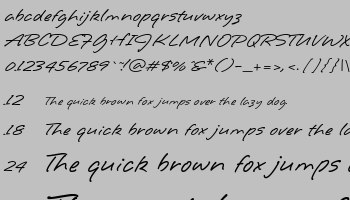 abcdefghijklmnopqrstuvwxyz
ABCDEFGHIJKLMNOPQRSTUVWX
0123456789`~!@#$%&*()-_+=>,<.[]{}|\
12 The quick brown fox jumps over the lazy dog.
18 The quick brown fox jumps over the la
24 The quick brown fox jumps